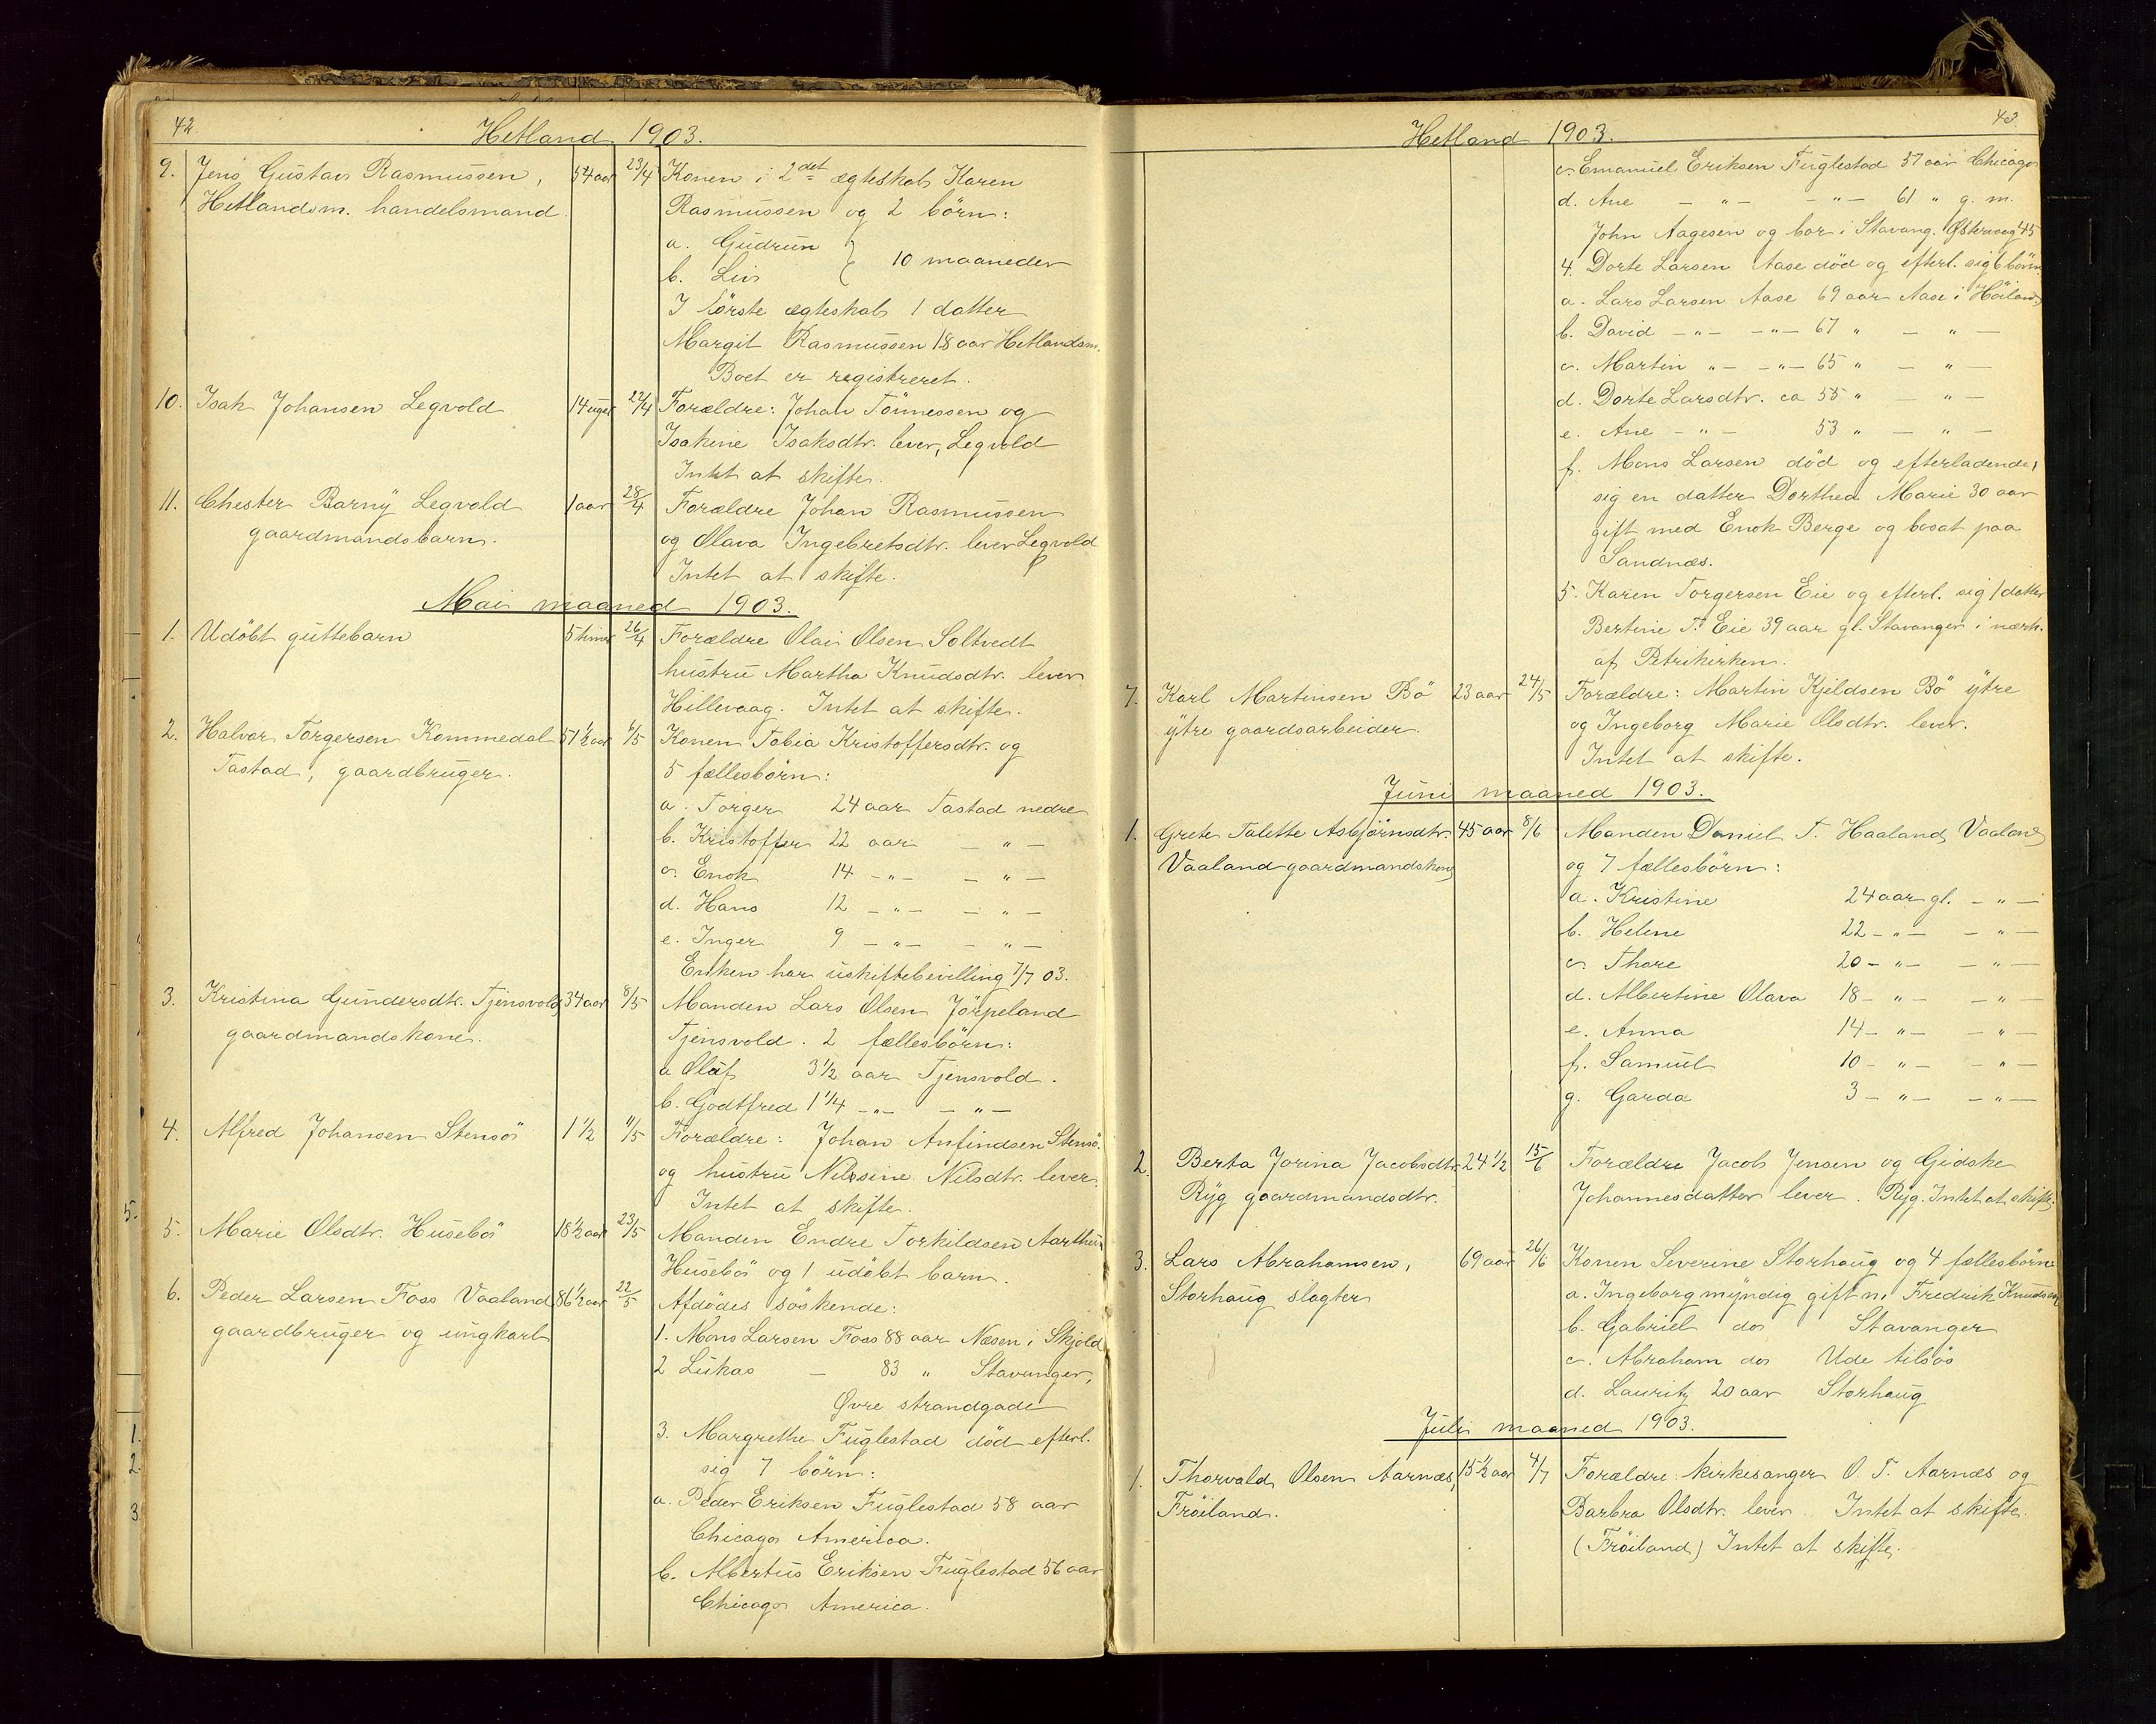 42.
Hetland 1903.
9. Jens Gustav Rasmussen, 54 aar 23/4 Konen i 2det ægteskab Karen
Hetlandsm. handelsmand. Rasmussen og 2 börn:
a. Gudrun } 10 maaneder
b. Liv
I förste ægteskab 1 datter
Margit Rasmussen 18 aar Hetlandsm.
Boet er registreret.
10. Isak Johansen Legvold 14 uger 22/4 Forældre: Johan Tönnessen og
Isakine Isaksdtr. lever, Legvold
Intet at skifte.
11. Chester Barny Legvold 1 aar 28/4 Forældre Johan Rasmussen
gaardmandsbarn. og Olava Ingebretsdtr. lever Legvold
Intet at skifte.
Mai maaned 1903.
1. Udöbt guttebarn 5 timer 26/4 Forældre Olai Olsen Soltvedt
hustru Martha Knudsdtr. lever
Hillevaag. Intet at skifte.
2. Halvor Torgersen Kommedal 51 1/2 aar 6/5 Konen Tobia Kristoffersdtr. og
Tastad, gaardbruger. 5 fællesbörn:
a. Torger 24 aar Tastad nedre
b. Kristoffer 22 aar — " —
c. Enok 14 — " — — " —
d. Hans 12 — " — — " —
e. Inger 9 — " — — " —
Enken har uskiftebevilling 7/7 03.
3. Kristina Gundersdtr. Tjensvold 34 aar 8/5 Manden Lars Olsen Jörpeland
gaardmandskone. Tjensvold. 2 fællesbörn:
a Olaf 3 1/2 aar Tjensvold.
b. Godtfred 1 1/4 — " — — " —
4. Alfred Johansen Stensö 1 1/2 11/5 Forældre: Johan Anfindsen Stensö
og hustru Nilsine Nilsdtr. lever.
Intet at skifte.
5. Marie Olsdtr. Husebö 18 1/2 aar 23/5 Manden Endre Torkildsen Aarthun
Husebö og 1 udöbt barn.
6. Peder Larsen Foss Vaaland 86 1/2 aar 22/5 Afdödes söskende:
gaardbruger og ungkarl 1. Mons Larsen Foss 88 aar Næsen i Skjold
2 Lukas — 83 " Stavanger,
Øvre strandgade
3. Margrethe Fuglestad död efterl.
sig 7 börn:
a. Peder Eriksen Fuglestad 58 aar
Chicago America.
b. Albertus Eriksen Fuglestad 56 aar
Chicago America.
5.
1.
2.
3
43
Hetland 1903.
c. Emanuel Eriksen Fuglestad 57 aar Chicago
d. Ane — " — — " — 61 " g. m.
John Aagesen og bor i Stavang. Østervaag 45
4. Dorte Larsen Aase död og efterl. sig 6 börn
a. Lars Larsen Aase 69 aar Aase i Höiland
b. David — " — — " — 67 " — " —
c. Martin " — — " — 65 " — " —
d. Dorte Larsdtr. ca 55 " — " —
e. Ane — " — 53 " — " —
f. Mons Larsen död og efterladende
sig en datter Dorthea Marie 30 aar
gift med Enok Berge og bosat paa
Sandnæs.
5. Karen Torgersen Eie og efterl. sig 1 datter
Bertine T. Eie 39 aar gl. Stavanger i nærh.
af Petrikirken.
7. Karl Martinsen Bö 23 aar 24/5 Forældre: Martin Kjeldsen Bö ytre
ytre gaardsarbeider. og Ingeborg Marie Olsdtr. lever.
Intet at skifte.
Juni maaned 1903.
1. Grete Talette Asbjörnsdtr. 45 aar 8/6 Manden Daniel T. Haaland, Vaaland
Vaaland gaardmandskone og 7 fællesbörn:
a. Kristine 24 aar gl. — " —
b. Helene 22 — " — — " —
c. Thore 20 — " — — " —
d. Albertine Olava 18 — " — — " —
e. Anna 14 — " — — " —
f. Samuel 10 — " — — " —
g. Garda 3 — " — — " —
2. Berta Jorina Jacobsdtr. 24 1/2 15/6 Forældre Jacob Jensen og Gidske
Ryg gaardmandsdtr. Johannesdatter lever. Ryg. Intet at skifte
3. Lars Abrahamsen, 69 aar 26/6 Konen Severine Storhaug og 4 fællesbörn
Storhaug slagter a. Ingeborg myndig gift m. Fredrik Knudsen
b. Gabriel do Stavanger
c. Abraham do Ude tilsös
d. Lauritz 20 aar Storhaug
Juli maaned 1903.
1. Thorvald Olsen Aarnæs, 15 1/2 aar 4/7 Forældre: kirkesanger O. T. Aarnæs og
Fröiland. Barbra Olsdtr. lever. Intet at skifte.
(Fröiland) Intet at skifte.